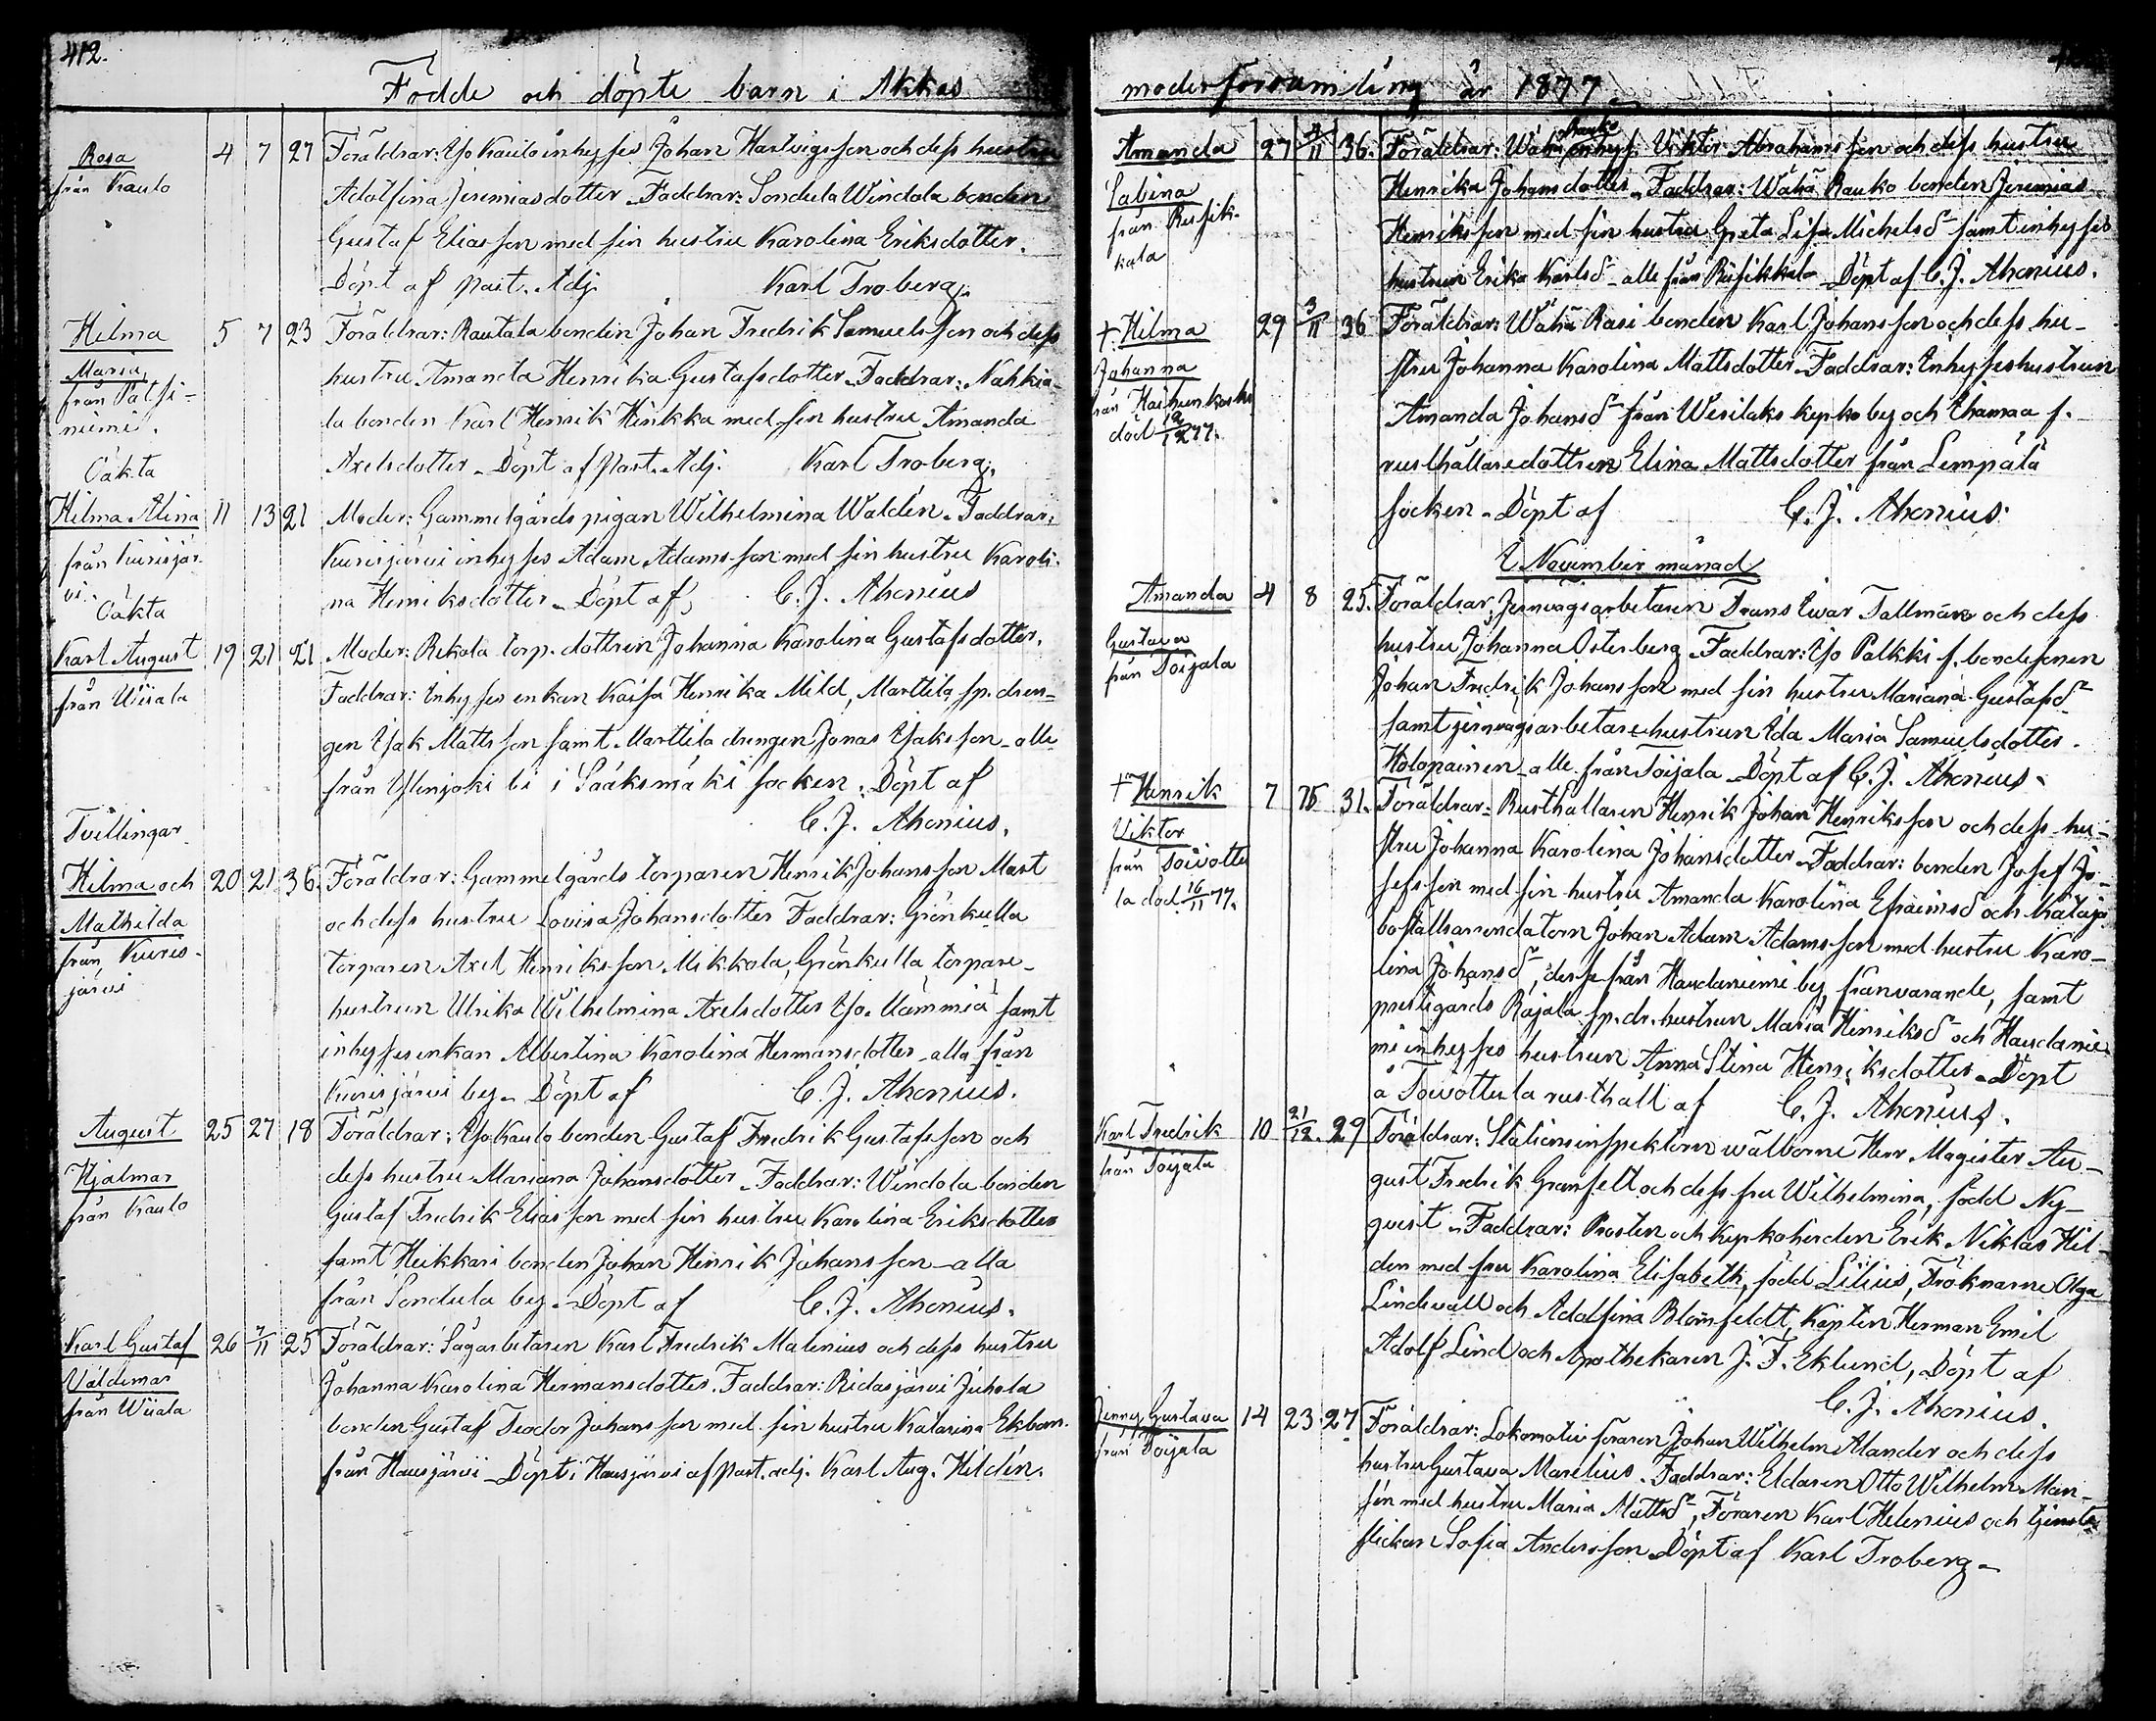 412.
Födde och döpte barn i Akkas
Rosa 4 7 27 Föräldrar: Iso Kaulo inhyses Johan Hartvigsson och dess hustru
från Kaulo Adolfina Jeremiasdotter. Faddrar: Sondula Windala bonden
Gustaf Eliasson med sin hustru Karolina Eriksdotter.
Döpt af past. Adj. Karl Troberg.
Hilma 5 7 23 Föräldrar: Rautala bonden Johan Fredrik Samuelsson och dess
Maria hustru Amanda Henrika Gustafsdotter. Faddrar: Nahkia-
från Pätsi-
niemi. la bonden Karl Henrik Heikka med sin hustru Amanda
Axelsdotter. Döpt af Past. Adj. Karl Troberg.
Oäkta
Hilma Alina 11 13 21 Moder: Gammelgårds pigan Wilhelmina Waldén. Faddrar:
från Kurisjär- Kurisjärvi inhyses Adam Adamsson med sin hustru Karoli-
vi. na Henriksdotter. Döpt af C. J. Ahonius
Oäkta
Karl August 19 21 21 Moder: Rekola torp. dottren Johanna Karolina Gustafsdotter.
från Wiiala Faddrar: Inhyses enkan Kaisa Henrika Mild, Marttila sp. dren-
gen Isak Mattsson samt Marttila drengen Jonas Isaksson - alle
från Ylenjoki bi i Sääksmäki socken. Döpt af
C. J. Ahonius.
Tvillingar
Hilma och 20 21 36. Föräldrar: Gammelgårds torparen Henrik Johansson Mast
Mathilda och dess hustru Lovisa Johansdotter Faddrar: Grönkulla
från Kuris- torparen Axel Henriksson Mikkola, Grönkulla torpare-
järvi hustrun Ulrika Wilhelmina Axelsdotter Iso. samt
inhyses enkan Albertina Karolina Hermansdotter - alla från
Kurisjärvi by. Döpt af C. J. Ahonius.
August 25 27 18 Föräldrar: Iso Kaulo bonden Gustaf Fredrik Gustafsson och
Hjalmar dess hustru Mariana Johansdotter. Faddrar: Windola bonden
från Kaulo Gustaf Fredrik Eliasson med sin hustru Karolina Eriksdotter
samt Heikkari bonden Johan Henrik Johansson - alla
från Sondula by. Döpt af C. J. Ahonius.
Karl Gustaf 26 7/11 25 Föräldrar: Sågarbetaren Karl Fredrik Malenius och dess hustru
Valdemar Johanna Karolina Hermansdotter. Faddrar: Ridasjärvi Juhola
från Wiiala bonden Gustaf Teodor Johansson med sin hustru Katarina Ekbom
från Hausjärvi - Döpt i Hausjärvi af past. adj. Karl Aug. Hildén.
moderförsamling år 1877
Rauko
Amanda 27 4/11 36. Föräldrar: Wähä inhys. Viktor Abrahamsson och dess hustru
Sabina Henrika Johansdotter. Faddrar: Wähä Rauko bonden Jeremias
från Risik- Henriksson med sin hustru Greta Lisa Michelsd samt inhyses
kala hustrun Erika Karlsd - alle från Risikkala. Döpt af C. J. Ahonius.
+ Hilma 29 3/11 36 Föräldrar: Wähä Rasi bonden Karl Johansson och dess hu-
Johanna stru Johanna Karolina Mattsdotter. Faddrar: Inhyseshustrun
från Haihunkoski Amanda Johansd från Wesilaks kyrko by och f.
död 12/12 77. rusthållaredottren Elina Mattsdotter från Lempälä
socken. Döpt af C. J. Ahonius.
I November månad
Amanda 4 8 25. Föräldrar: Jernvägsarbetaren Frans Ivar Tallman och dess
Gustava hustru Johanna Österberg. Faddrar: Iso Palkki f. bondesonen
från Toijala Johan Fredrik Johansson med sin hustru Mariana Gustafsd
samt jernvägsarbetare hustrun Ida Maria Samuelsdotter
Holopainen - alle från Toijala. Döpt af C. J. Ahonius.
+ Henrik 7 15 31. Föräldrar: Rusthållaren Henrik Johan Henriksson och dess hu-
Viktor stru Johanna Karolina Johansdotter. Faddrar: bonden Josef Jo-
från Toivottu sefsson med sin hustru Amanda Karolina Efraimsd och Kataja
la död 16/11 77. boställsarrendatorn Johan Adam Adamsson med hustru Karo-
lina Johansd, desse från Haudaniemi by, frånvarande, samt
prestegårds Rajala sp. dr. hustrun Maria Henriksd och Haudanie-
mi inhyses hustrun Anna Stina Henriksdotter. Döpt
å Toivottula rusthåll af C. J. Ahonius.
Karl Fredrik 10 21/12. 29 Föräldrar: Stationsinspektorn wälborne Herr Magister Au-
från Toijala gust Fredrik Granfelt och dess fru Wilhelmina, född Ny-
qvist. Faddrar: Prosten och Kyrkoherden Erik Niklas Hil-
den med fru Karolina Elisabeth, född Lilius, Fröknarne Olga
Lindevall och Adolfina Blomfeldt, Kapten Herman Emil
Adolf Lind och Apothekaren J. F. Eklund, Döpt af
C. J. Ahonius.
Jenny Gustava 14 23 27 Föräldrar: Lokomotiv föraren Johan Wilhelm Alander och dess
från Toijala hustru Gustava Marelius. Faddrar: Eldaren Otto Wilhelm Man-
sén med hustru Maria Mattsd, Föraren Karl Helenius och tjenste-
flickan Sofia Andersson. Döpt af Karl Troberg.